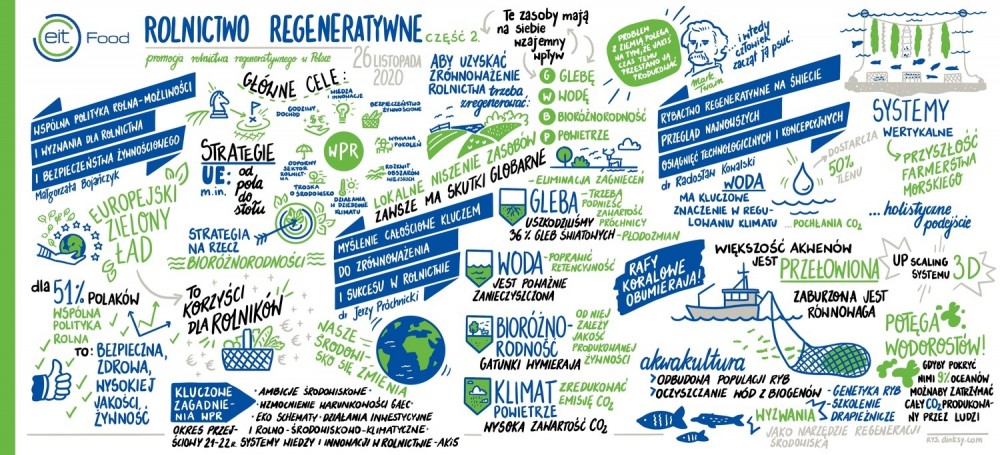 eit Food
ROLNICTWO REGENERATYWNE CZĘŚĆ 2.
promocja rolnictwa regeneratywnego w Polsce
26 LISTOPADA
2020
WSPÓLNA POLITYKA ROLNA-MOŻLIWOŚCI
I WYZWANIA DLA ROLNICTWA
I BEZPIECZEŃSTWA ŻYWNOŚCIOWEGO
Małgorzata Bojańczyk
EUROPEJSKI
ZIELONY
ŁAD
GŁÓWNE CELE:
GODZIWY
DOCHÓD
WIEDZA
I INNOWACJE
BEZPIECZEŃSTWO
ŻYWNOŚCIOWE
WPR
WYMIANA
POKOLEŃ
ODPORNY
SEKTOR
ROLNICT-
WA
ROZKWIT
OBSZARÓW
WIEJSKICH
TROSKA
O ŚRODOWISKO
DZIAŁANIA
W DZIEDZINIE
KLIMATU
STRATEGIE
UE:
m.in.
od
pola
do
stołu
STRATEGIA
NA RZECZ
BIORÓŻNORODNOŚCI
dla 51% POLAKÓW
WSPÓLNA
POLITYKA
ROLNA
TO: BEZPIECZNA,
ZDROWA,
WYSOKIEJ
JAKOŚCI,
ŻYWNOŚĆ
TO
KORZYŚCI
DLA ROLNIKÓW
KLUCZOWE
ZAGAD-
NIENIA
WPR
OKRES PRZEJ-
ŚCIOWY 21-22R.
· AMBICJE ŚRODOWISKOWE·
· WZMOCNIENIE WARUNKOWOŚCI GAEC·
· EKO SCHEMATY· DZIAŁANIA INWESTYCYJNE
I ROLNO-ŚRODOWISKOWO-KLIMATYCZNE·
SYSTEMY WIEDZY I INNOWACJI W ROLNICTWIE-AKIS
Te zasoby mają
na siebie
wzajemny
wpływ
ABY UZYSKAĆ
ZRÓWNOWAŻENIE
ROLNICTWA trzeba
zregenerować:
G GLEBĘ
W WODĘ
B BIORÓŻNORODNOŚĆ
P POWIETRZE
LOKALNE NISZCZENIE ZASOBÓW
ZAWSZE MA SKUTKI GLOBALNE
MYŚLENIE CAŁOŚCIOWE KLUCZEM
DO ZRÓWNOWAŻENIA
I SUKCESU W ROLNICTWIE
dr Jerzy Próchnicki
NASZE
ŚRODOWI-
SKO SIĘ ZMIENIA
-ELIMINACJA ZAGNIECEŃ
GLEBA
-TRZEBA
PODNIEŚĆ
ZAWARTOŚĆ
PRÓCHNICY
USZKODZILIŚMY
36% GLEB ŚWIATOWYCH -PŁODOZMIAN
WODA -POPRAWIĆ
RETENCYJNOŚĆ
JEST POWAŻNIE
ZANIECZYSZCZONA
BIORÓŻNO-
RODNOŚĆ
OD NIEJ
ZALEŻY
JAKOŚĆ
PRODUKOWANEJ
ŻYWNOŚCI
GATUNKI WYMIERAJĄ
KLIMAT ZREDUKOWAĆ
EMISJĘ CO2
POWIETRZE
WYSOKA ZAWARTOŚĆ CO2
PROBLEM
Z ZIEMIĄ POLEGA
NA TYM, ŻE JAKIŚ
CZAS TEMU
PRZESTANO JĄ
PRODUKOWAĆ
Mark
Twain
...i wtedy
człowiek
zaczął ją psuć.
RYBACTWO REGENERATYWNE NA ŚWIECIE
PRZEGLĄD NAJNOWSZYCH
OSIĄGNIĘĆ TECHNOLOGICZNYCH I KONCEPCYJNYCH
dr Radosław Kowalski
WODA
MA KLUCZOWE
ZNACZENIE W REGU-
LOWANIU KLIMATU
DOSTARCZA
50%
TLENU
...POCHŁANIA CO2
SYSTEMY
WERTYKALNE
PRZYSZŁOŚĆ
FARMERSTWA
MORSKIEGO
...holistyczne
podejście
RAFY
KORALOWE
OBUMIERAJĄ!
WIĘKSZOŚĆ AKWENÓW
JEST PRZEŁOWIONA
ZABURZONA JEST
RÓWNOWAGA
UP SCALING
SYSTEMU 3D
POTĘGA
WODOROSTÓW!
GDYBY POKRYĆ
NIMI 9% OCEANÓW
MOŻNABY ZATRZYMAĆ
CAŁY CO2 PRODUKOWA-
NY PRZEZ LUDZI
akwakultura
ODBUDOWA POPULACJI RYB
OCZYSZCZANIE WÓD Z BIOGENÓW
WYZWANIA
-GENETYKA RYB
-SZKOLENIE
DRAPIEŻNICZE
JAKO NARZĘDZIE REGENERACJI
ŚRODOWISKA
RYS. dinksy.com